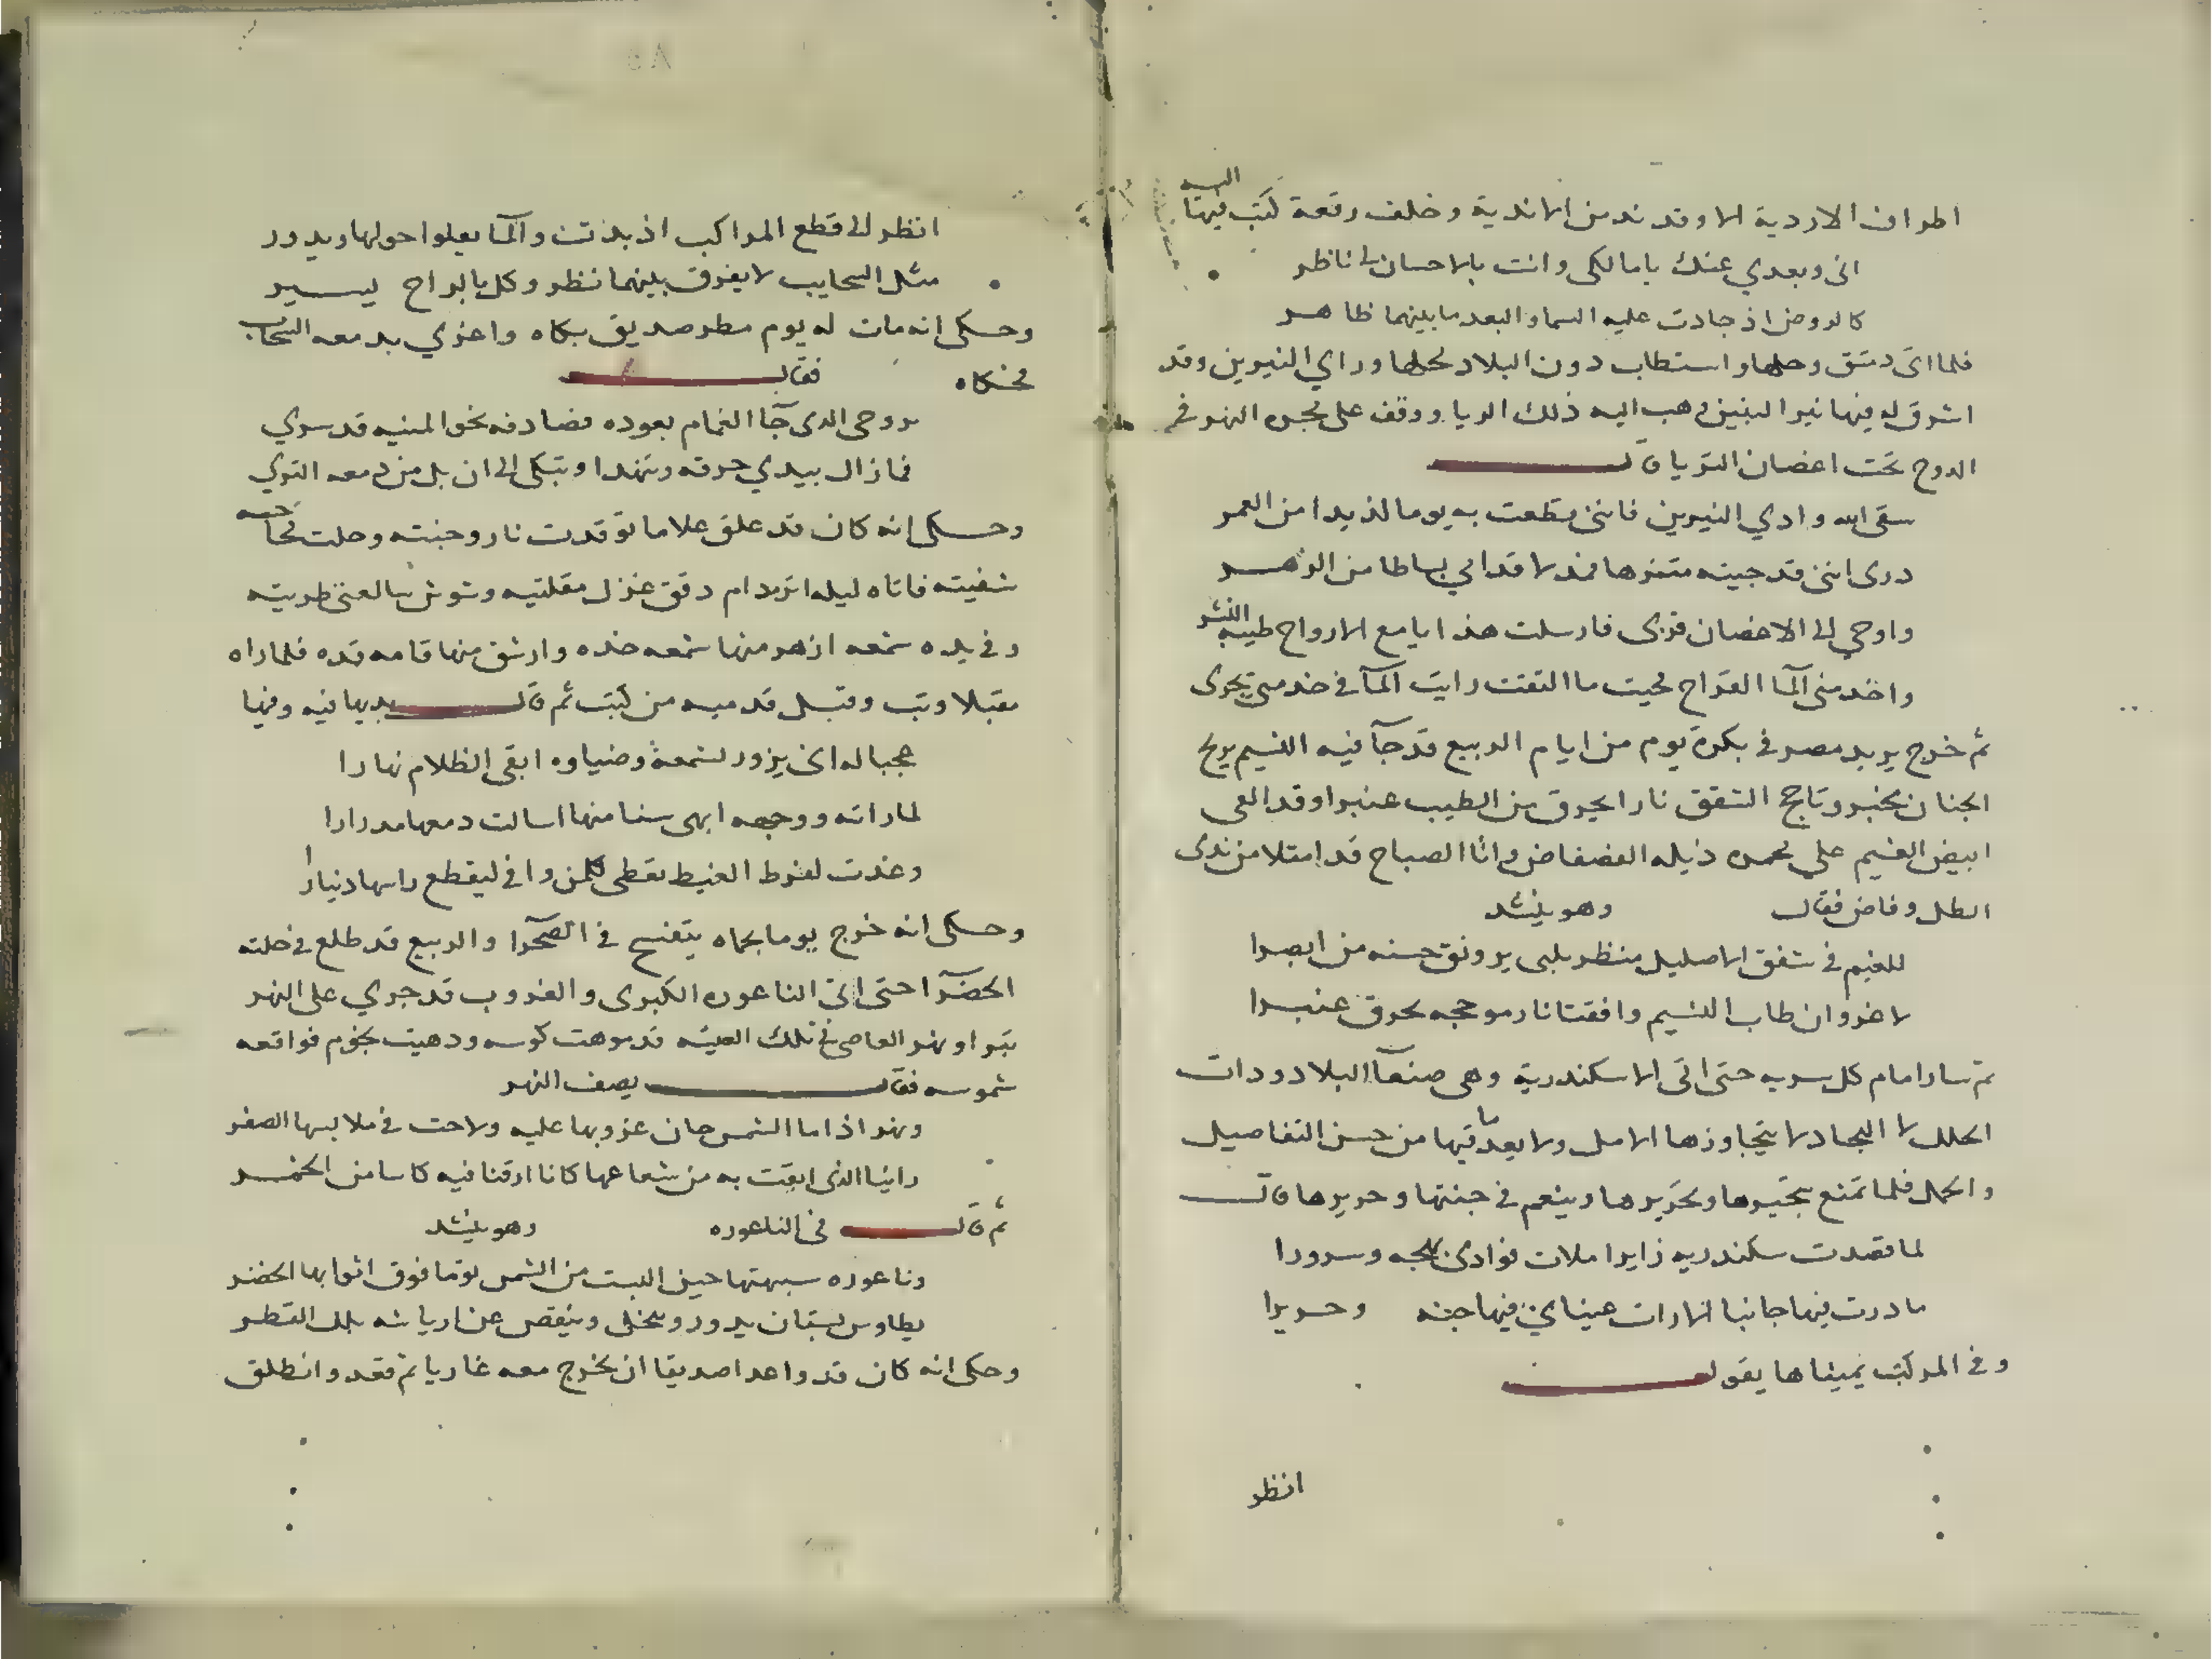 اطراف الاردية الا وقد ند من الاندية وخلف رقعة كتب فيها اليه
انى وبعدي عنك يا مالكى وانت بالاحسان لى ناظر
كالروض اذ جادت عليه السما والبعد ما بينهما ظاهر
فلما اتى دمشق وحلها واستطاب دون البلاد محلها وراي النيربين وقد
اشرق له فيها نيرا البنين وهب اليه ذلك الريا ووقف على مجره النهر في
الدوح تحت اغصان الثريا قال
سقى الله وادي النيربين فاننى قطعت به يوما لذيذا من العمر
درى اننى قد جيته متنزها فمد لاقدامي بساطا من الزهر
واوحى الى الاغصان قربى فارسلت هدايا مع الارواح طيبة النشر
واخدمنى المآ القراح فحيث ما التفت رايت المآ في خدمتى يجرى
ثم خرج يريد مصر في بكرة يوم من ايام الربيع قد جآ فيه النسيم بريح
الجنان يخبر وتاجج الشفق نارا يحرق من الطيب عنبرا وقد القى
ابيض الغيم على نحره ذيله الفضفاض وانا الصباح قد امتلا من ندى
الطل وفاض فقال وهو ينشد
للغيم في شفق الاصليل منظر يلبى برونق حسنه من ابصرا
لا غرو ان طاب النسيم وافقنا نار موججه يحرق عنبرا
ثم سار امام كل سربه حتى اتى الاسكندرية وهى صنعآ البلاد وذات
الحلل لا البجاد لا يتجاوزها الامل ولا يعد ما فيها من حسن التفاصيل
والجمل فلما تمتع بحبيرها وتحريرها وينعم في جنتها وحريرها قال
لما قصدت سكندريه زايرا ملات فوادى بهجه وسرورا
ما درت فيها جانبا الا رات عيناي فيها جنه وحريرا
وفي المركب بميناها يقول
انظر
انظر الى قطع المراكب اذ بدت والمآ يعلوا حولها ويدور
مثل السحايب لا يفرق بينهما نظر وكل بالرياح يسير
وحكى انه مات له يوم مطر صديق بكاه واغرى بدمعه السحاب
فحكاه فقال
بروحى الذى جآ الغمام يعوده فصادفه نحو المنيه قد سري
فما زال يبدي حرقه وتنهدا ويبكى الى ان بل من دمعه الثري
وحكى انه كان قد علق غلاما توقدت نار وجنته وحلت مجاجه
شفيته فاتاه ليله اثر مدام دقق غزل مقلتيه وشوش بالعنى طريته
وفي يده شمعه ازهر منها شمعه خده وارشق منها قامه قده فلما راه
مقبلا وثب وقبل قدميه من كثب ثم قال بديها فيه وفيها
عجبا له انى يزور بشمعة وضياوه ابقى الظلام نهارا
لما راته ووجهه ابهى سنا منها اسالت دمعها مدرارا
وغدت لفرط الغيظ تعطى كلمن وافى ليقطع راسها دنيارا
وحكى انه خرج يوما بحماه يتفسح في الصحرا والربيع قد طلع في حلته
الخضرآ حتى اتى الناعوره الكبرى والغروب قد جري على النهر
تبرا ونهر العاصى في تلك العيشه قد موهت كوسه وذهبت نجوم فواقعه
شموسه فقال يصف النهر
ونهر اذا ما الشمس حان غروبها عليه ولاحت في ملابسها الصفر
راينا الذى ابقت به من شعاعها كانا ارقنا فيه كاسا من الخمر
ثم قال في الناعوره وهو ينشد
وناعوره شبهتها حين البست من الشمس ثوبا فوق اثوابها الخضر
بطاوس بستان يدور وينجلى وينفض عن ارياشه بلل القطر
وحكى انه كان قد واعد صديقا ان يخرج معه غاريا ثم فقد وانطلق